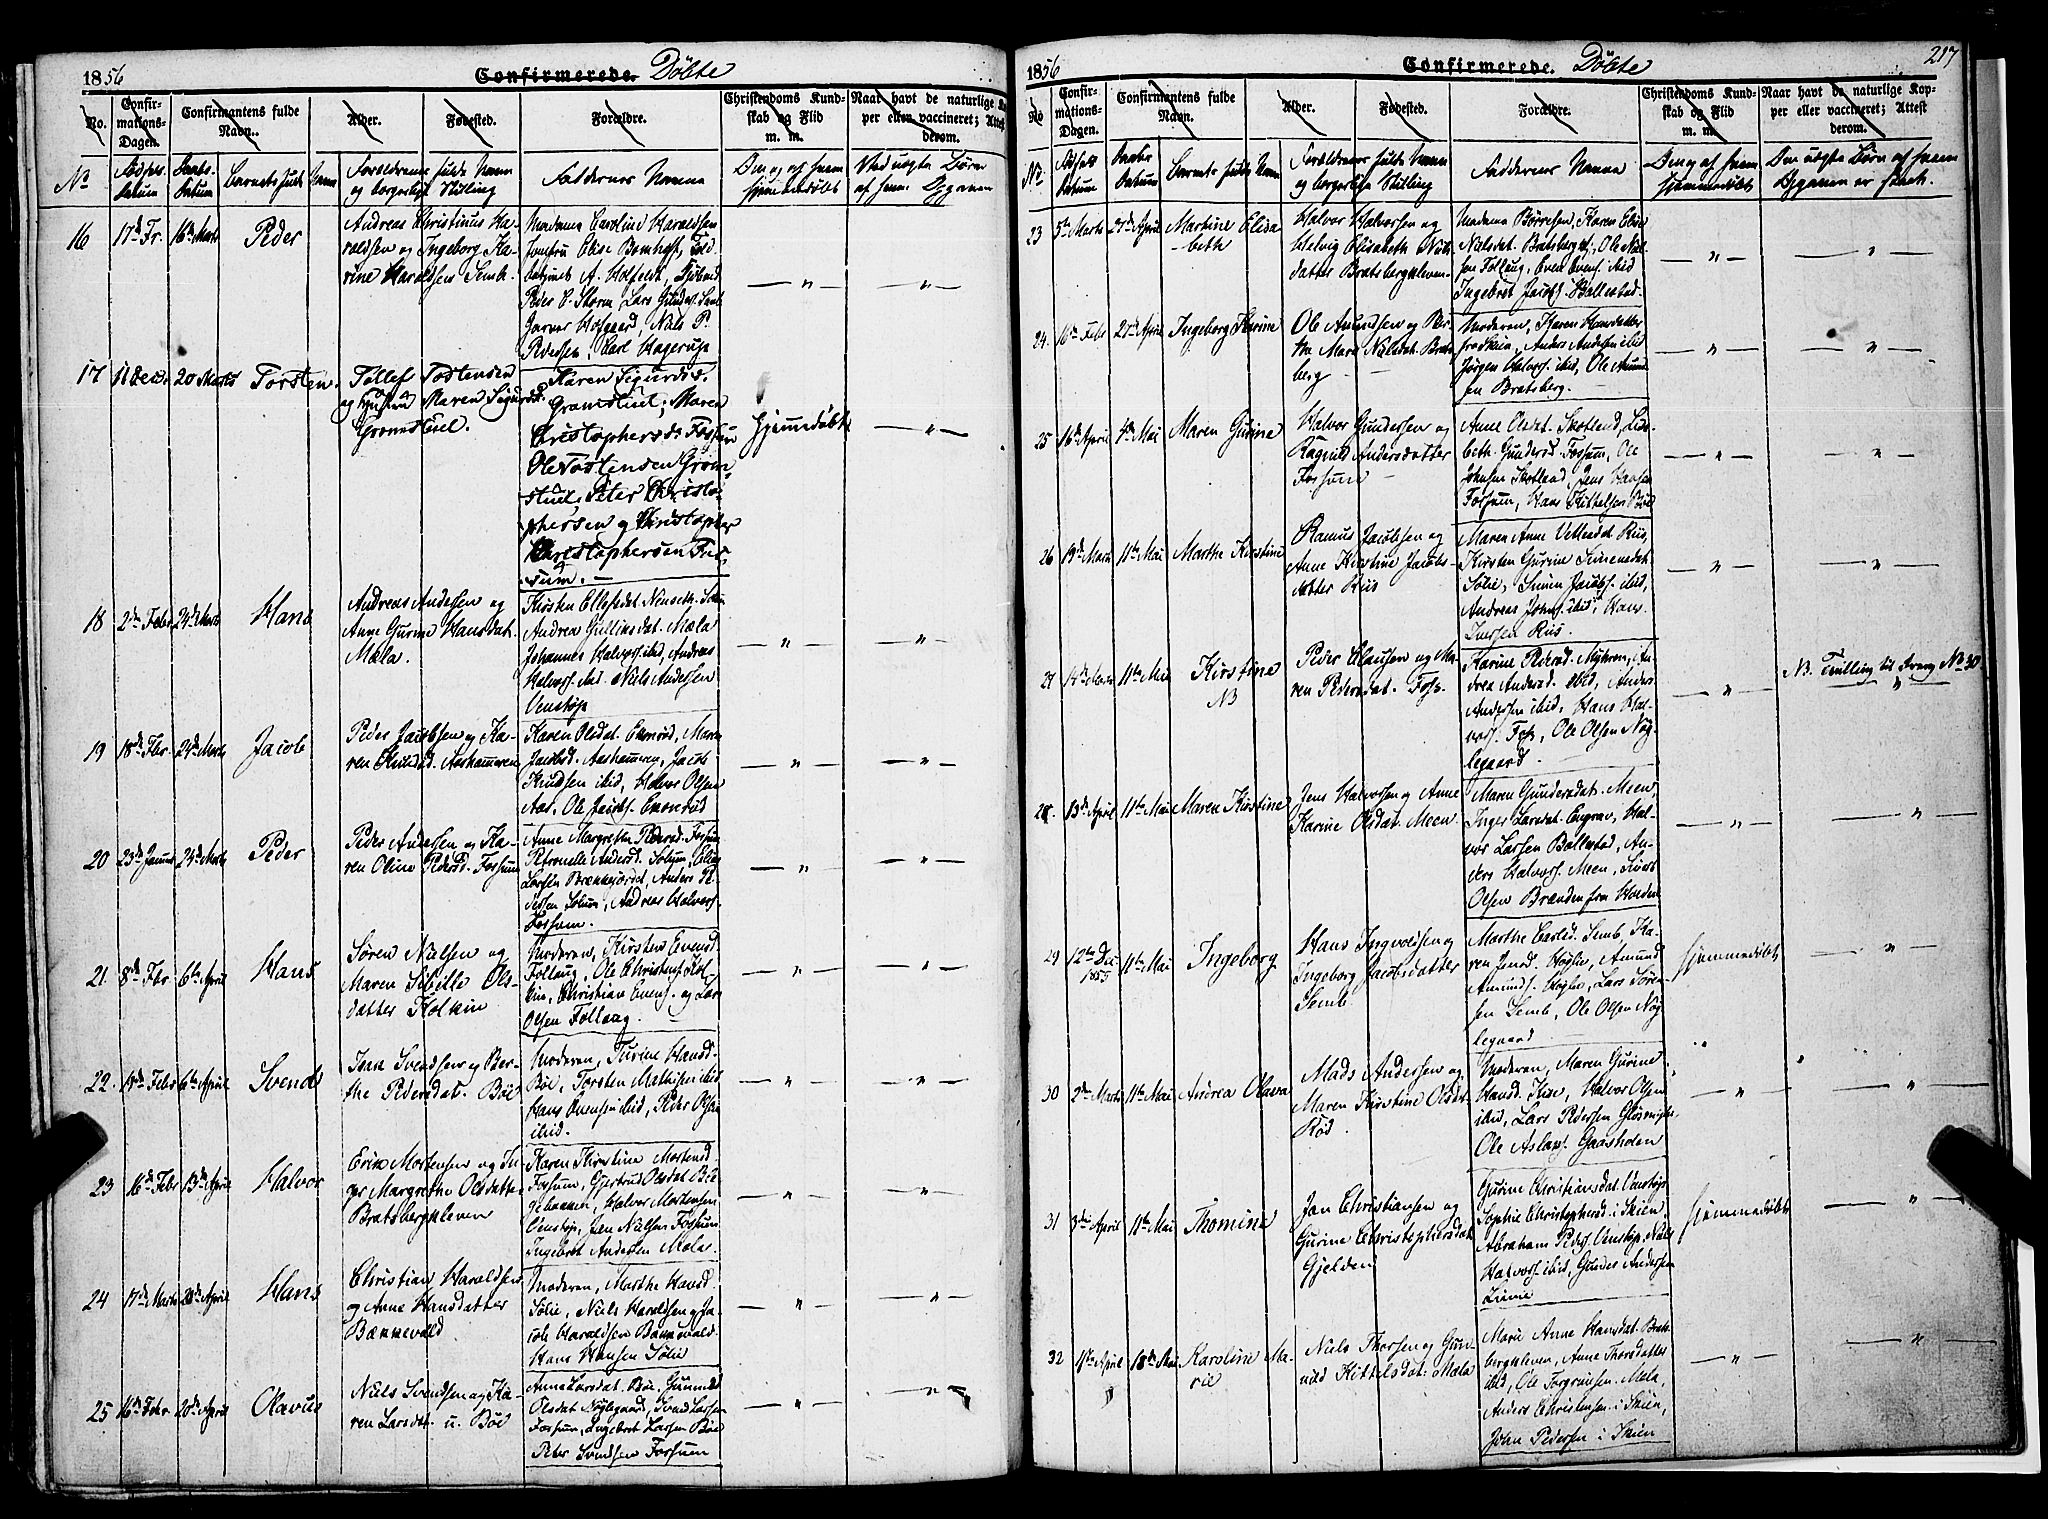 1856 Confirmerede. Döbte
No. Confirmations-Dagen. Confirmantens fulde Navn. Alder. Fødested. Forældre. Christendoms Kundskab og Flid m. m. Naar havt de naturlige Kopper eller vaccineret; Attest derom.
No Fødselsdatum Daabsdatum Barnets fulde Navn Forældrenes fulde Navne og borgerlige Stilling Faddernes Navne
16 17de Fr. 16de Marts Peder
Andreas Christinus Haraldsen og Ingeborg Karine Haraldsen Semb.
Madame Caroline Haraldsen
Jomfru Elise
Peder C. Storm, Lars
Hofgaard, Niels P.
Pedersen, Carl Hagerup
17 11 Dec. 20 Marts Torsten.
Tollef Tostensen
og Hustrud Maren Sigurdsd.
Gromstuel.
Karen Sigurdsd.
Gromstuel, Maren
Christophersd. Fossum
Ole Tostensen Gromstuel, Peter Christophersen og Christopher
Christophersen Fossum. —
Hjemmedöbt
18 2den Febr 24de Marts Hans
Andreas Andersen og
Anne Gurine Hansdat.
Mæla.
Kirsten Ellefsdat.
Andrea Gullinsdat. Mæla
Johannes Halvors. ibid, Andreas
Halvors. Aas. Niels Andersen
Venstöp
19 18de Fbr. 24de Marts Jacob
Peder Jacobsen og Karen Aashammeren
Karen Olsdat. Enonröd, Maren
Jacobsd. Aashammeren, Jacob
Knudsen ibid, Halvor Olsen
Aas. Ole Jacobs. Enonröd
20 23de Januar 24de Marts Peder
Peder Andersen og Karen Oline Pedersd. Fossum
Anne Margrethe Pedersd. Fossum
Petronelle Andersd. Solum, Elias
Larsen Brekkejordet, Anders Pedersen Solum, Andreas Halvors.
Fossum.
21. 8de Fbr. 6te April Hans
Sören Nielsen og
Maren Sibille Olsdatter Kolkin
Moderen, Kirsten Evensd.
Follaug, Ole Christens. Kolkin, Christian Evens. og Lars
Olsen Follaug
22. 19de Febr 6te April Svend
Svendsen og Berthe Pedersdat. Böe
Moderen, Turine Hansd.
Böe, Torsten Mathisen ibid
Hans Evensen ibid, Peder Olsen
ibid.
23 16de Febr 13de April Halvor
Erik Mortensen og Inger Margrethe Olsdatter
Bratsbergkleven
Karen Kirstine Mortensd.
Fossum, Gjertrud Olsdat Böe
Halvor Mortensen
Venstöp, Jens Nielsen Fossum
Ingebret Andersen Mæla.
24 17de Marts 20de April Hans
Christian Haraldsen
og Anne Hansdatter
Bænnevald
Moderen, Marthe Hansd.
Sölie, Niels Haraldsen og Jacob Haraldsen Bænnevald.
Hans Hansen Sölie
25 16de Febr. 20de April Olavus
Niels Svendsen og Karen Larsdat. u. Böe
Anne Larsdat. Böe, Gunnild
Olsdat Nöglegaard, Svend Larsen
Fossum, Ingebret Larsen Böe
Peter Svendsen Fossum
1856 Confirmerede. Döbte 217
No Confirmations-Dagen. Confirmantens fulde Navn. Alder. Fødested. Forældre. Christendoms Kundskab og Flid m. m. Naar havt de naturlige Kopper eller vaccineret; Attest derom.
23 5te Marts 27de April Martine Elisabeth
Halvor Halvorsen og
Helvig Elisabeth Nielsdatter Bratsbergkleven
Madame Börresen, Karen Elise
Nielsdat. Bratsbergkl., Ole Nielsen Follaug, Even Evens. ibid
Ingebret Jacobs. Ballestad.
24. 16de Febr 27de April Ingeborg Karine
Ole Amundsen og Berthe Marie Nielsdat. Bratsberg
Moderen, Karen Hansdatter
fra Skien, Anders Andersen ibid
Jörgen Halvors. ibid, Ole Amundsen Bratsberg.
25 16de April 4de Mai Maren Gurine
Halvor Gundersen og
Ragnild Andersdatter
Fossum
Anne Olsdat. Skotland, Lisbeth Gundersd Fossum, Ole
Johnsen Skotland, Jens Hansen
Fossum, Hans Kittelsen Böe
26 19de Marts 11te Mai Marthe Kirstine
Rasmus Jacobsen og
Anne Kirstine Jacobsdatter Riis
Maren Anne Vetlesdat Riis,
Kirsten Gurine Simensdat.
Sölie, Simen Jacobs. ibid,
Andreas Johns. ibid, Hans
Iversen Riis.
27 14de Marts 11te Mai Kirstine
NB
Peder Clausen og Maren Pedersdat. Foss.
Karine Pedersd. Myhren, Andrea Andersd. ibid, Anders
Andersen ibid, Hans Halvors. Foss, Ole Olsen Nöglegaard
NB. Tvilling til Dreng No 30
28. 13de April 11te Mai Maren Kirstine
Jens Halvorsen og Anne
Karine Olsdat. Meen
Maren Gundersdat. Meen,
Inger Larsdat. Engrav, Halvor Larsen Ballestad, Anders Halvors. Meen, Sivert
Olsen Brænden fra Hveden
29 12te Dec 1855 11te Mai Ingeborg
Hans Ingvoldsen og
Ingeborg Jacobsdatter
Semb
Marthe Carlsd. Semb, Karen Jensd. Höglie, Amund
Amunds. Höglie, Lars Sörensen Semb, Ole Olsen Nöglegaard
Hjemmedöbt
30 2den Marts 11te Mai Andrea Olava
Mads Andersen og
Maren Kirstine Olsdat.
Röd.
Moderen, Maren Gurine
Hansd. Kise, Halvor Olsen
ibid, Lars Pedersen
Ole Aslaks. Gaasholen
31 3die April 11te Mai Thomine
Jan Christiansen og
Gurine Christophersdat
Gjelden
Gurine Christiansdat. Venstöp
Sophie Christophersd. i Skien,
Abraham Peders. Venstöp, Niels
Halvors. ibid, Gunder Andersen
Hjemmedöbt
32 1ste April 18de Mai Karoline Marie
Niels Thorsen og Gunnild Kittelsdat. Mæla
Marie Anne Hansdat. Bratsbergkleven, Anne Thorsdatter
ibid, Ole Torgrimsen Mæla,
Anders Christensen i Skien,
John Pedersen i Skien